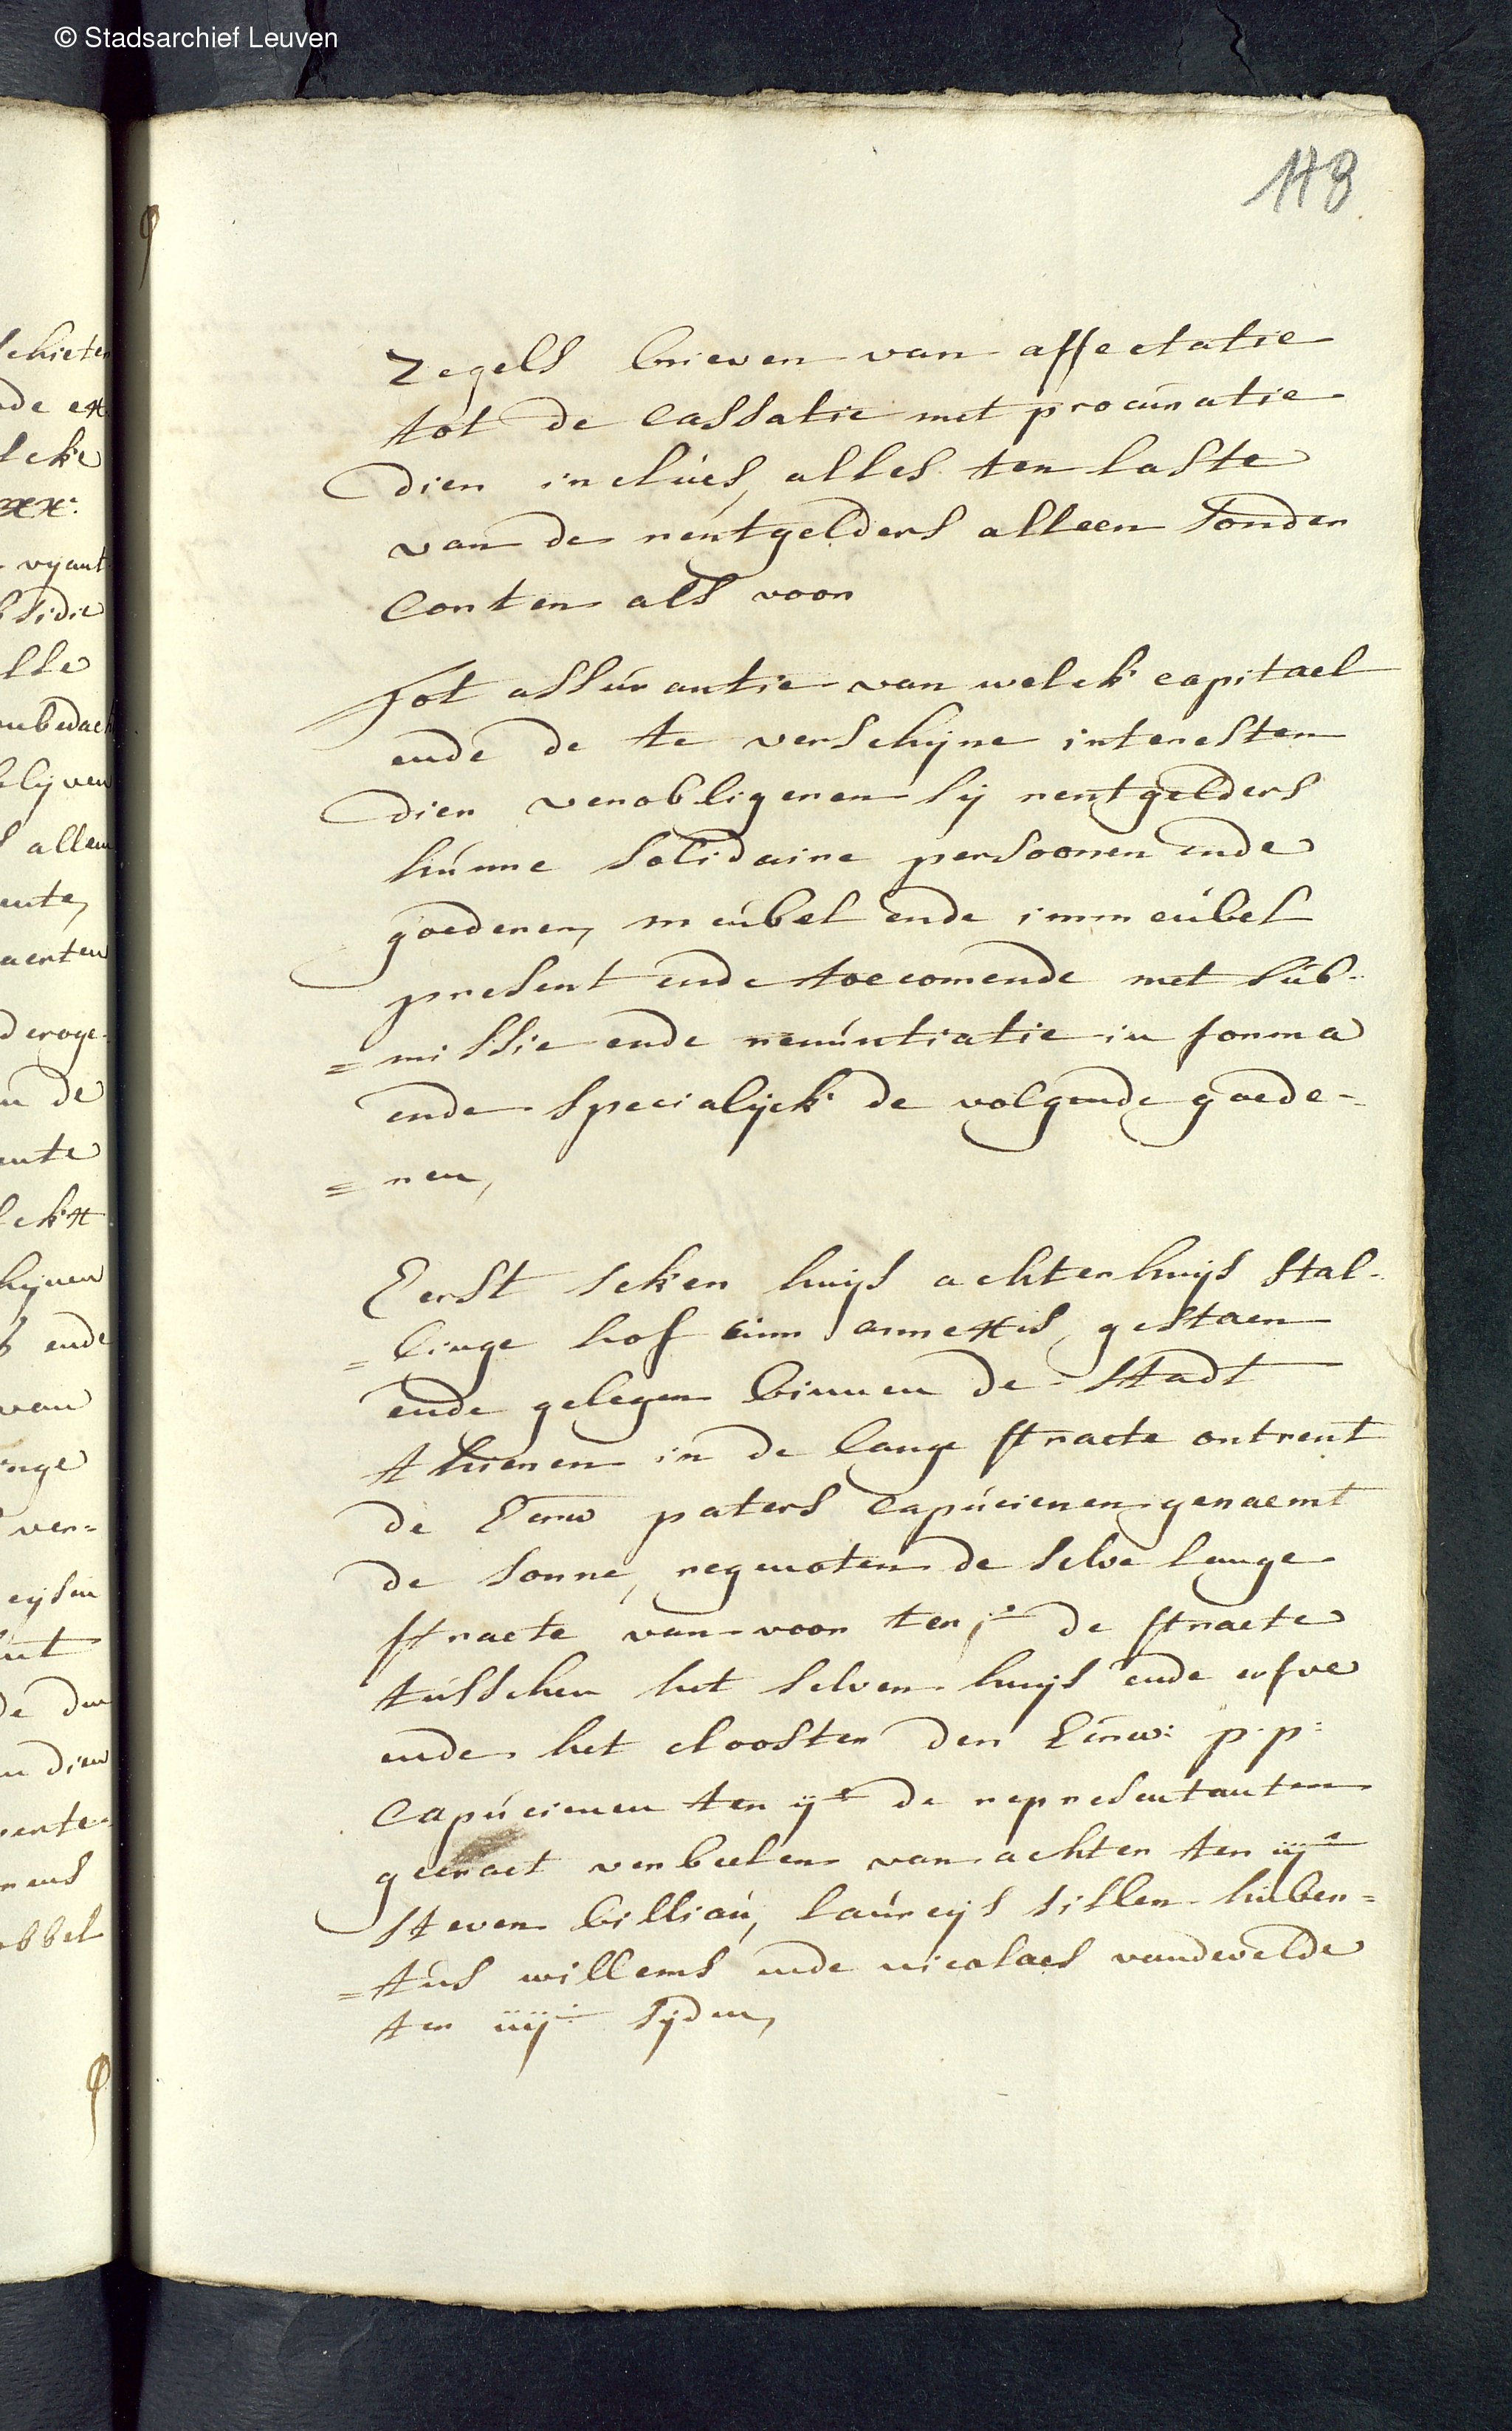 © Stadsarchief Leuven
118
zegels brieven van affectatie
tot de cassatie met procuratie
dien inclúes, alles ten laste
van de rentgelders alleen sonder
corten als voor
Tot assúrantie van welck capitael
ende de te verschijne interesten
dien verobligeren sij rentgelders
húnne solidaire persoonen ende
goederen, meúbel ende immeúbel
present ende toecomende met súb-
=missie ende renúntiatie in forma
ende specialijck de volgende goede-
=ren,
Eerst seker huijs achterhuijs stal-
=linge hof cum annexis, gestaen
ende gelegen binnen de stadt
thienen in de lange straete ontrent
de Eerw paters capúcienen genaemt
de sonne, regenoten de selve lange
straete van voor ter j.e de straete
tússchen het selven huijs ende erfve
ende het clooster der Eerw: p.p:
capúcienen ter ij.e de representanten
geeraet verbeelen van achter ter iij.e
steven billiaú, laúreijs sillen húber-
=tús willems ende nicolaes vandevelde
ter iiij.e sijden,